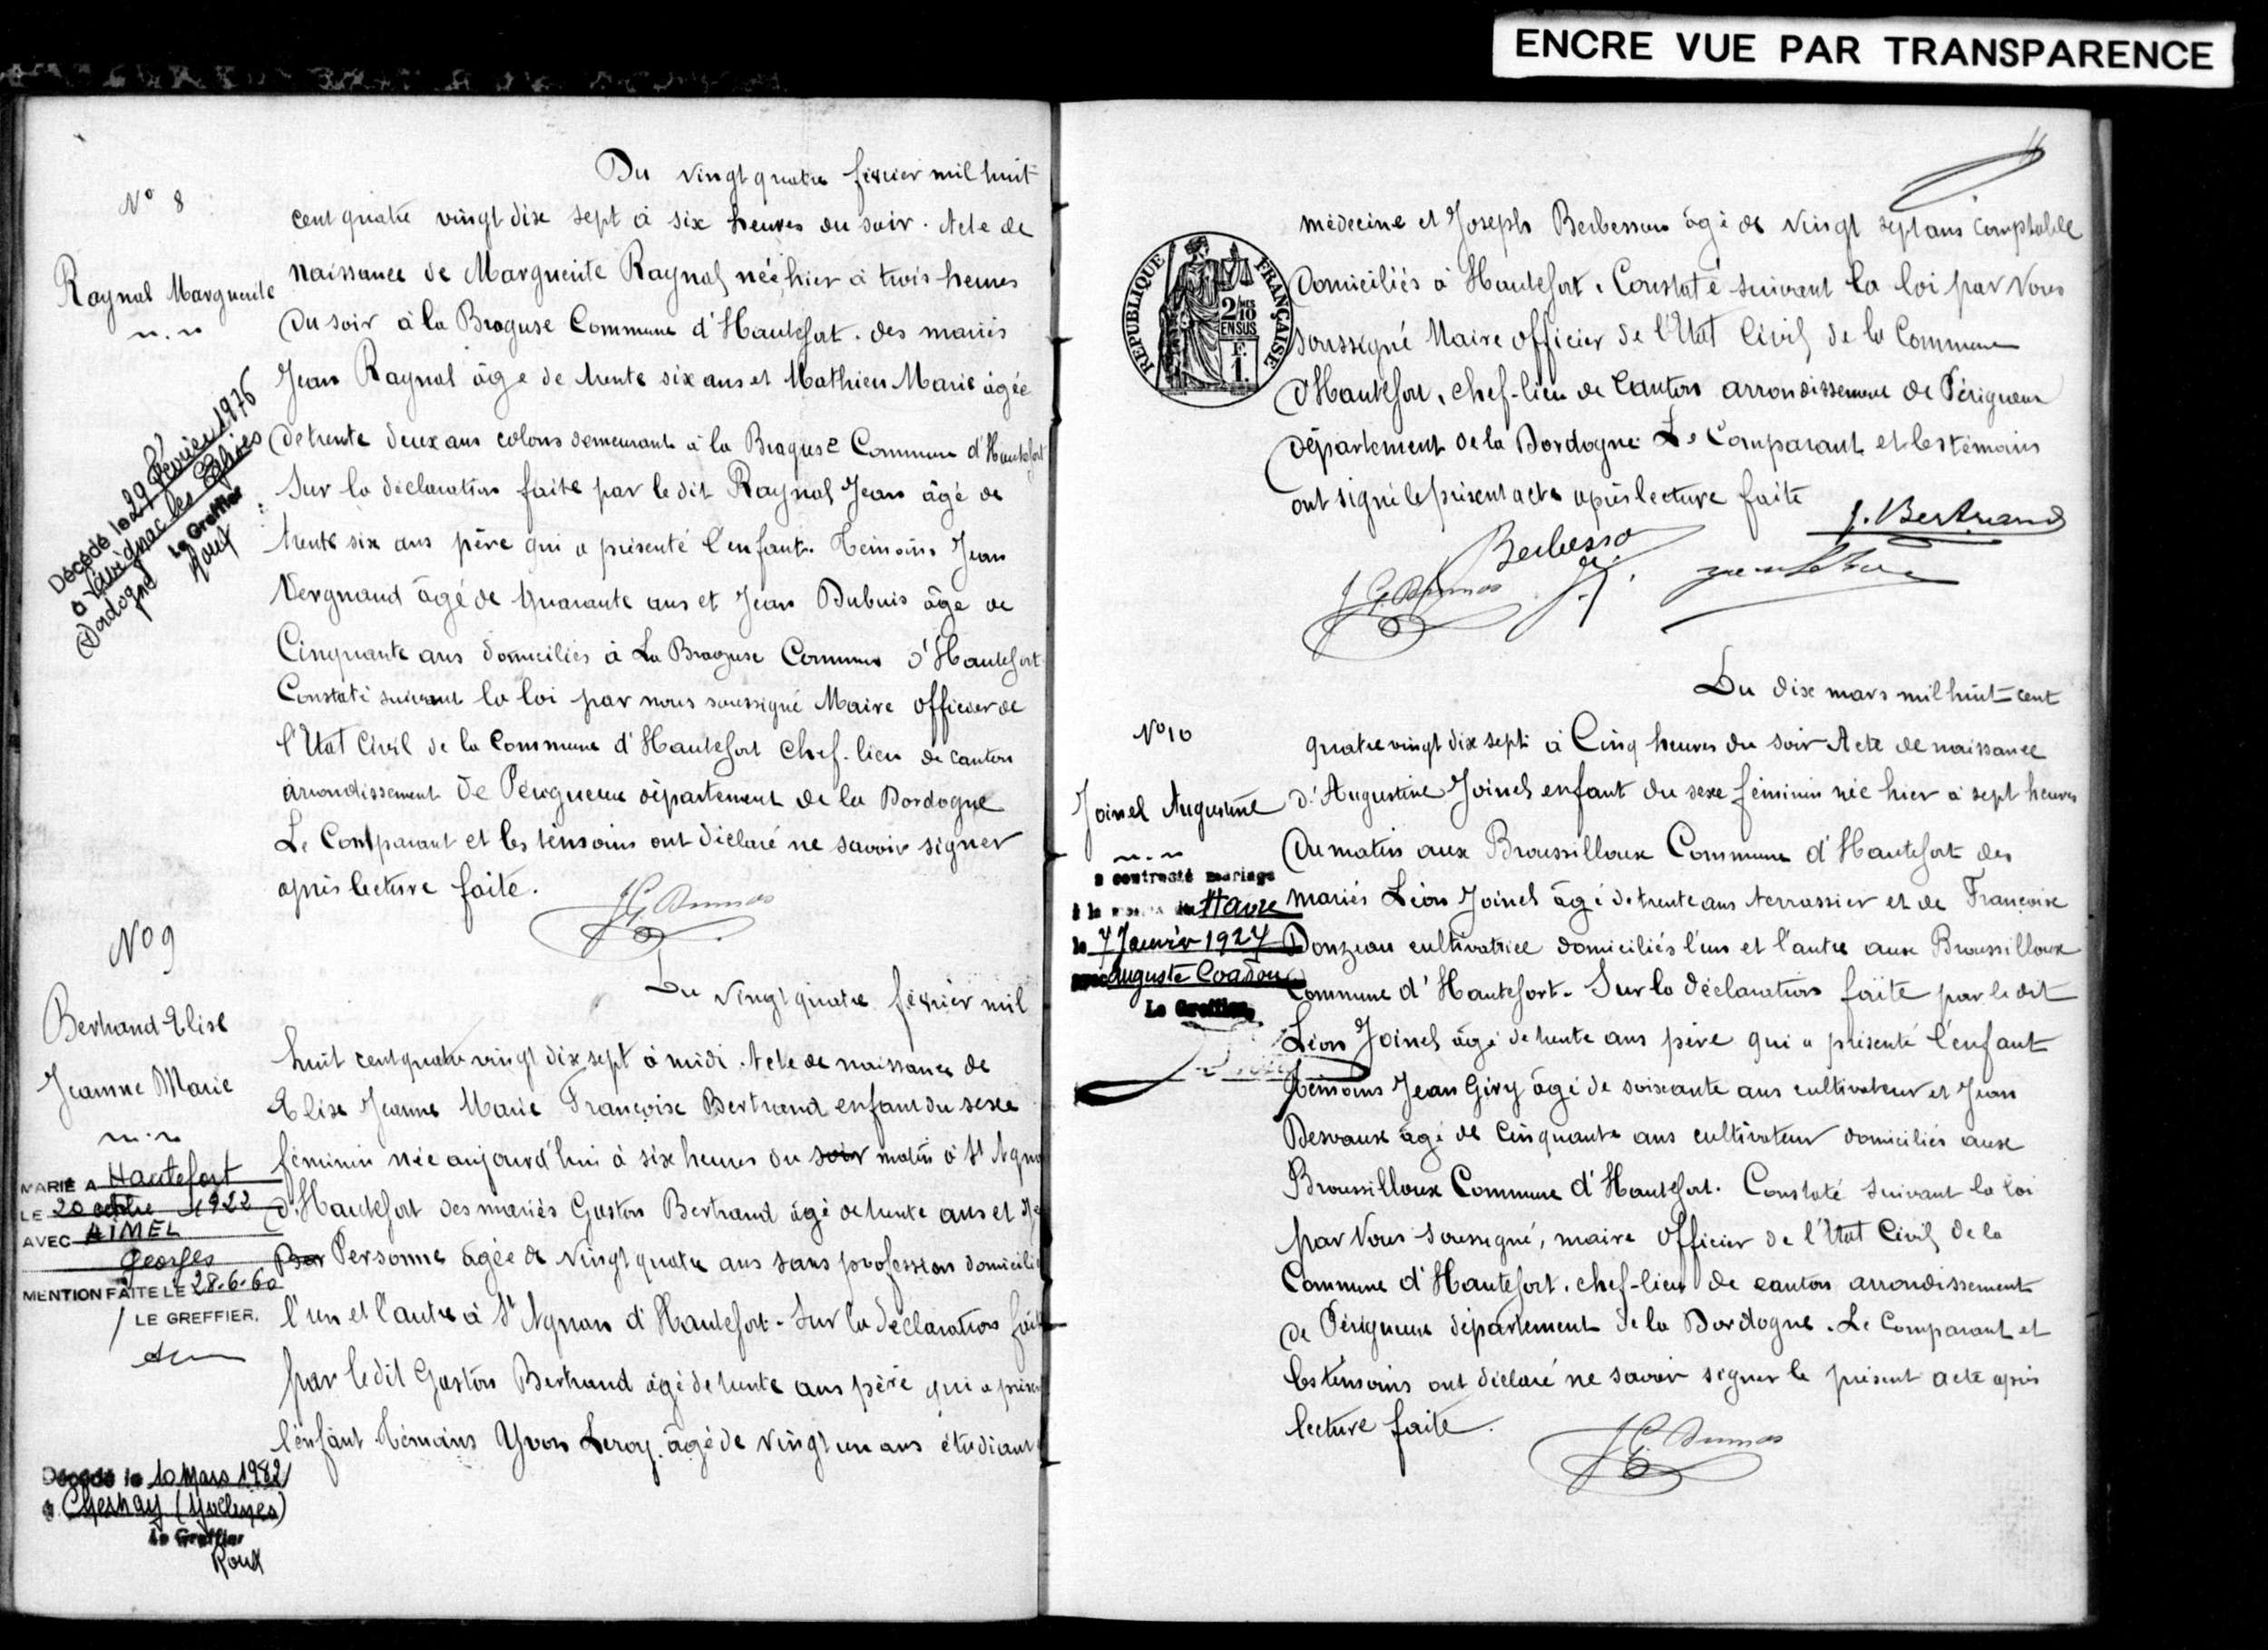 ENCRE VUE PAR TRANSPARENCE
N° 8
Raynal Marguerite
n. n
Décédé le 29 février 1976
à Savignac les Eglises
Dordogne
Le Greffier
Roux
Du vingt quatre février mil huit
cent quatre vingt dix sept à six heures du soir. Acte de
naissance de Marguerite Raynal née hier à trois heures
du soir à la Braguse Commune d'Hautefort. des mariés
Jean Raynal âgé de trente six ans et Mathieu Marie âgée
de trente deux ans colons demeurant à la Braguse Commune d'Hautefort
Sur la déclaration faite par le dit Raynal Jean âgé de
trente six ans père qui a présenté l'enfant. Témoins Jean
Vergnaud âgé de quarante ans et Jean Dubuis âgé de
Cinquante ans domiciliés à La Braguse Commune d'Hautefort
Constaté suivant la loi par nous soussigné Maire officier de
l'Etat Civil de la Commune d'Hautefort chef-lieu de canton
arrondissement de Périgueux département de la Dordogne
Le Comparant et les témoins ont déclaré ne savoir signer
après lecture faite.
JG Dumas
N° 9
Bertrand Elise
Jeanne Marie
n. n
MARIÉ A Hautefort
LE 20 octobre 1922
AVEC AIMEL
Georges
MENTION FAITE LE 28.6.60
LE GREFFIER.
Décédé le 10 Mars 1982
à Chesnay (Yvelines)
Le Greffier
Roux
Du vingt quatre février mil
huit cent quatre vingt dix sept à midi. Acte de naissance de
Elise Jeanne Marie Françoise Bertrand enfant du sexe
féminin née aujourd'hui à six heures du soir matin à St Agna
d'Hautefort des mariés Gaston Bertrand âgé de trente ans et
Personne âgée de vingt quatre ans sans profession domicilié
l'un et l'autre à St Agnan d'Hautefort. Sur la déclaration fait
par le dit Gaston Bertrand âgé de trente ans père qui a présen
l'enfant Témoins Yvon Leroy âgé de vingt un ans étudiant
REPUBLIQUE FRANÇAISE
2/10 MES
EN SUS
F.
1.
médecine et Joseph Berbesson âgé de vingt sept ans Comptable
Domiciliés à Hautefort. Constaté suivant la loi par Nous
soussigné Maire officier de l'Etat Civil de la Commune
d'Hautefort, chef-lieu de Canton arrondissement de Périgueux
département de la Dordogne Le Comparant et les témoins
ont signé le présent acte après lecture faite
J. Bertrand
Berbesson
J G Dumas
N° 10
Joinel Augustine
n. n
a contracté mariage
à la mairie du Havre
le 7 Janvier 1927
avec Auguste Coadou
Le Greffier
Du dix mars mil huit-cent
quatre vingt dix sept à Cinq heures du soir Acte de naissance
d'Augustine Joinel enfant du sexe féminin née hier à sept heures
du matin aux Broussilloux Commune d'Hautefort des
mariés Léon Joinel âgé de trente ans terrassier et de Françoise
Donzeau cultivatrice domiciliés l'un et l'autre aux Broussilloux
Commune d'Hautefort. Sur la déclaration faite par le dit
Léon Joinel âgé de trente ans père qui a présenté l'enfant
Témoins Jean Giry âgé de soixante ans cultivateur et Jean
Desvaux âgé de Cinquante ans cultivateur domiciliés aux
Broussilloux Commune d'Hautefort. Constaté suivant la loi
par Nous soussigné, maire officier de l'Etat Civil de la
Commune d'Hautefort, chef-lieu de canton arrondissement
de Périgueux département de la Dordogne. Le Comparant et
les témoins ont déclaré ne savoir signer le présent acte après
lecture faite.
JG Dumas